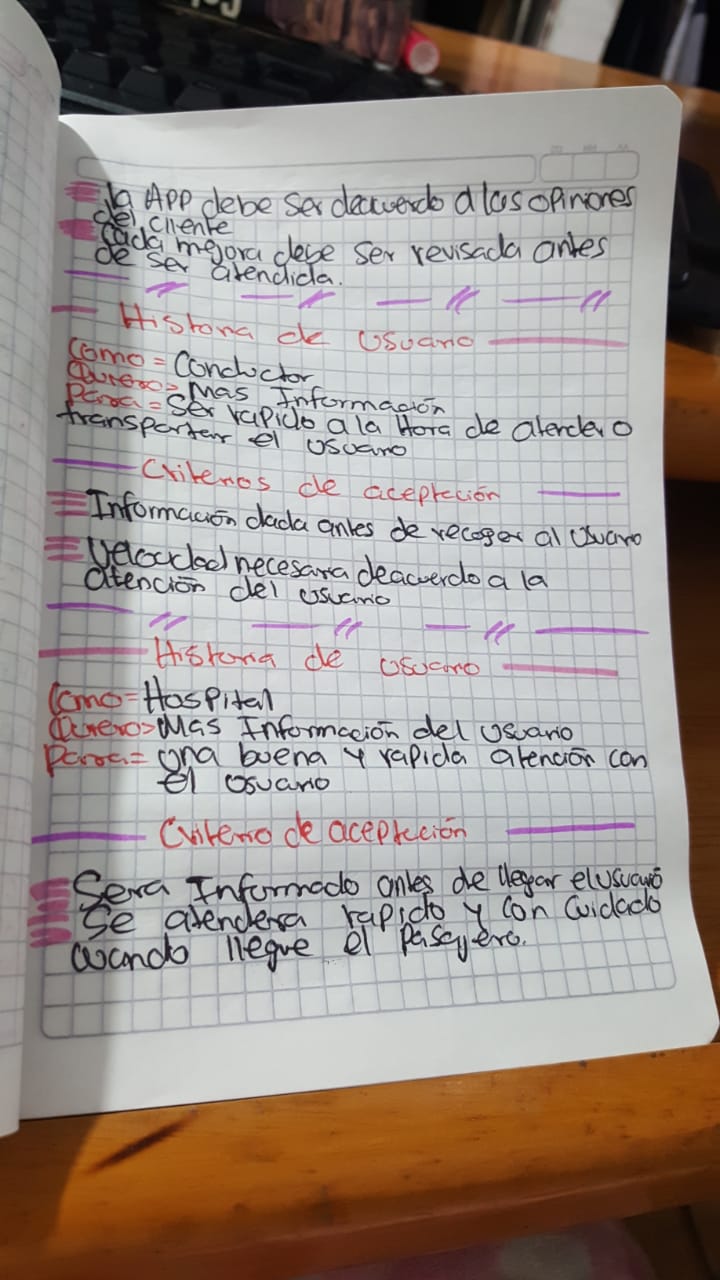 la APP debe ser deacuerdo a las opiniones
del cliente
Cada mejora debe ser revisada antes
de ser atendida.
Historia de Usuario
Como = Conductor
Quiero = Mas Información
Para = Ser rapido a la Hora de atender o
transportar el usuario
Criterios de aceptación
Información dada antes de recoger al usuario
Velocidad necesaria deacuerdo a la
atención del usuario
Historia de usuario
Como = Hospital
Quiero = Mas Información del usuario
Para = una buena y rapida atención con
el usuario
Criterio de aceptación
Sera Informado antes de llegar el usuario
Se atendera rapido y con cuidado
cuando llegue el pasajero.